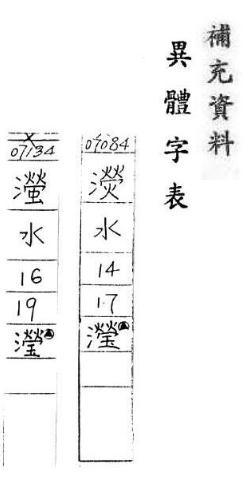 補充資料
異體字表
07084
濴
水
14
17
瀅
X
07134
㶈
水
16
19
瀅